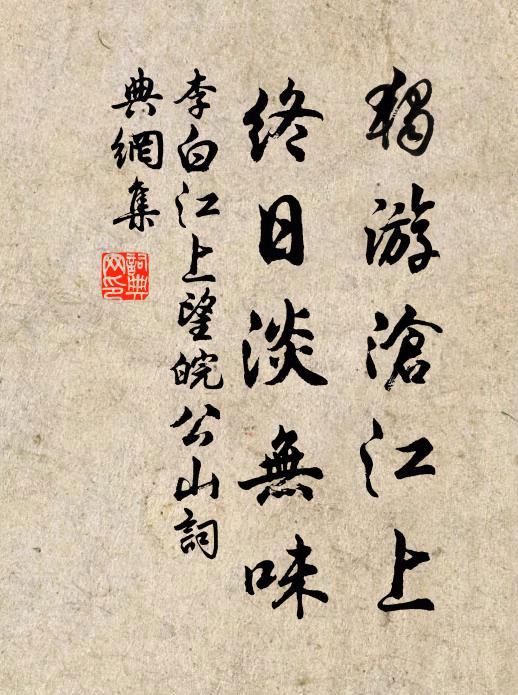 獨游滄江上
終日淡無味
李白江上望皖公山詞
典網集
詞典
网印